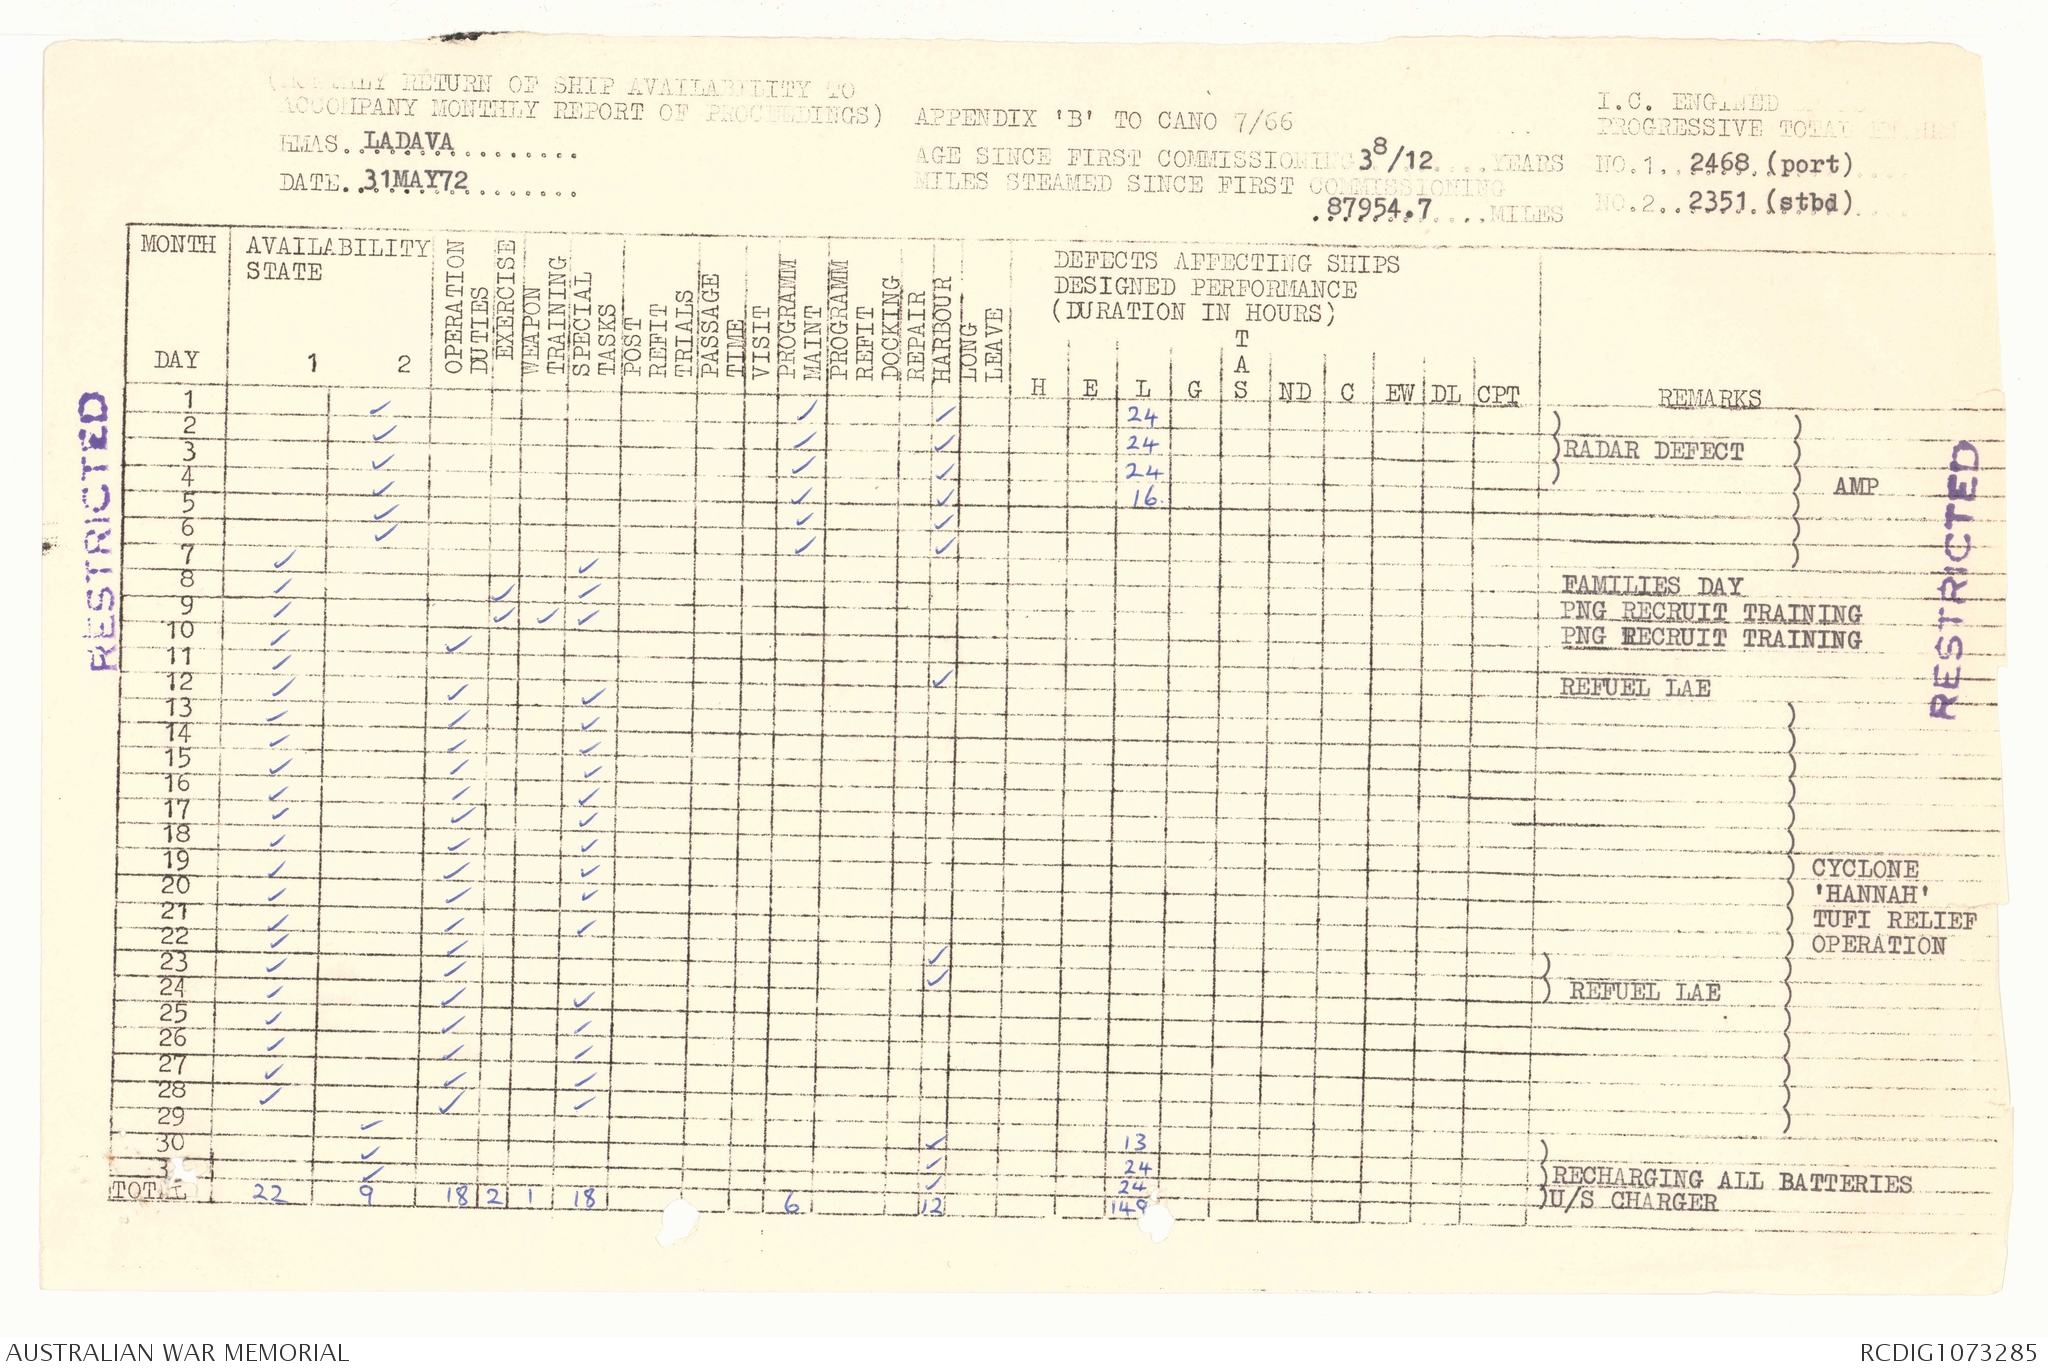 (MONTHLY RETURN OF SHIP AVAILABILITY TO
ACCOMPANY MONTHLY REPORT OF PROCEEDINGS)
HMAS..LADAVA
DATE..31MAY72
APPENDIX 'B' TO CANO 7/66
AGE SINCE FIRST COMMISSIONING 3 8/12....YEARS
MILES STEAMED SINCE FIRST COMMISSIONING
87954.7....MILES
I.C. ENGINED
PROGRESSIVE TOTAL
NO.1..2468 (port)
NO.2..2351 (stbd)
RESTRICTED
RESTRICTED
MONTH
DAY
AVAILABILITY
STATE
1 2
OPERATION DUTIES
EXERCISE
WEAPON TRAINING
SPECIAL TASKS
POST REFIT TRIALS
PASSAGE TIME
VISIT
PROGRAMM MAINT
PROGRAMM REFIT DOCKING
REPAIR
HARBOUR
LONG LEAVE
DEFECTS AFFECTING SHIPS
DESIGNED PERFORMANCE
(DURATION IN HOURS)
H E L G TAS ND C EW DL CPT
REMARKS
1 ✓ ✓ ✓ 24
2 ✓ ✓ ✓ 24 RADAR DEFECT
3 ✓ ✓ ✓ 24
4 ✓ ✓ ✓ 16 AMP
5 ✓ ✓ ✓
6 ✓ ✓ ✓
7 ✓ ✓ FAMILIES DAY
8 ✓ ✓ ✓ PNG RECRUIT TRAINING
9 ✓ ✓ ✓ ✓ PNG RECRUIT TRAINING
10 ✓ ✓
11 ✓ ✓ REFUEL LAE
12 ✓ ✓ ✓
13 ✓ ✓ ✓
14 ✓ ✓ ✓
15 ✓ ✓ ✓
16 ✓ ✓ ✓
17 ✓ ✓ ✓
18 ✓ ✓ ✓
19 ✓ ✓ ✓ CYCLONE
20 ✓ ✓ ✓ 'HANNAH'
21 ✓ ✓ ✓ TUFI RELIEF
22 ✓ ✓ ✓ OPERATION
23 ✓ ✓ ✓ REFUEL LAE
24 ✓ ✓ ✓
25 ✓ ✓ ✓
26 ✓ ✓ ✓
27 ✓ ✓ ✓
28 ✓ ✓ ✓
29 ✓ ✓ 13
30 ✓ ✓ 24 RECHARGING ALL BATTERIES
3 ✓ ✓ 24 U/S CHARGER
TOTAL 22 9 18 2 1 18 6 12 149
AUSTRALIAN WAR MEMORIAL
RCDIG1073285